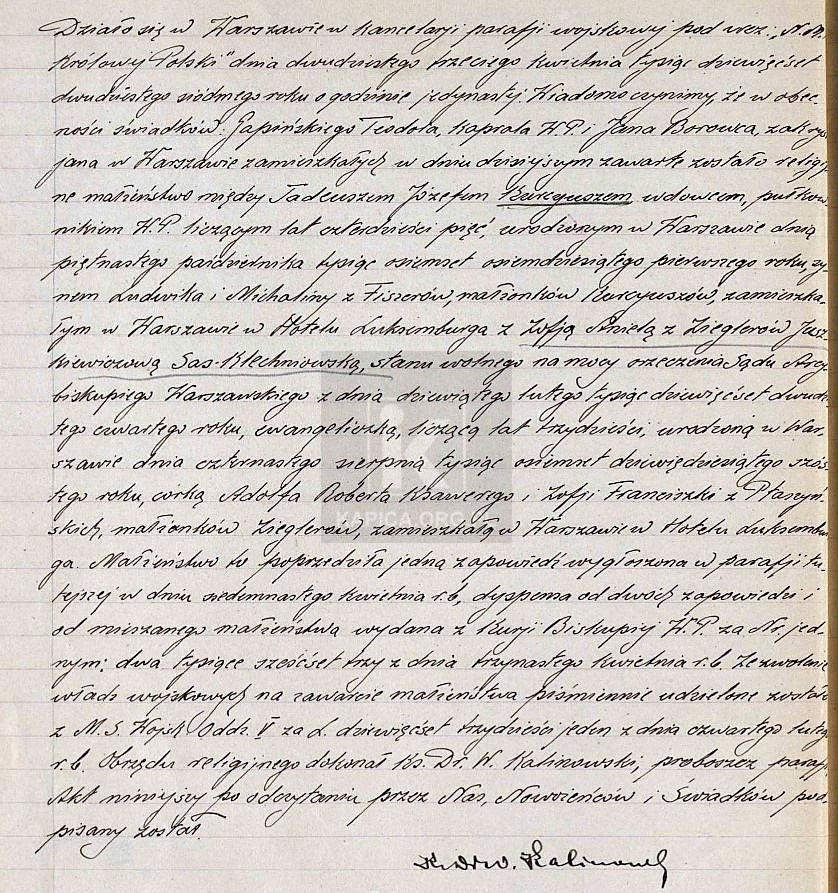 Działo się w Warszawie w kancelarji parafji wojskowej pod wez: „N.M.
Królowy Polski" dnia dwudziestego trzeciego kwietnia tysiąc dziewięćset
dwudziestego siódmego roku o godzinie jedynastej. Wiadomo czynimy, że w obec-
ności świadków: Gapińskiego Teodora, kaprala W.P. i Jana Borowca, zakry-
jana w Warszawie zamieszkałych w dniu dzisiejszym zawarte zostało religij-
ne małżeństwo między Tadeuszem Józefem Kurcyuszem wdowcem, pułkow-
nikiem W.P. liczącym lat czterdzieści pięć, urodzonym w Warszawie dnia
piętnastego października tysiąc osiemset osiemdziesiątego pierwszego roku, sy-
nem Ludwika i Michaliny z Fiszerów, małżonków Kurcyuszów, zamieszka-
łym w Warszawie w Hotelu Luksemburga z Zofją Anielą z Zieglerów Jusz-
kiewiczową Sas-Klechniowską, stanu wolnego na mocy orzeczenia Sądu Arcy-
biskupiego Warszawskiego z dnia dziewiątego lutego tysiąc dziewięćset dwudzies-
tego czwartego roku, ewangeliczką, liczącą lat trzydzieści, urodzoną w War-
szawie dnia czternastego sierpnia tysiąc osiemset dziewięćdziesiątego szós-
tego roku, córką Adolfa Roberta Ksawerego i Zofji Franciszki z Ptaszyń-
skich, małżonków Zieglerów, zamieszkałą w Warszawie w Hotelu Luksembur-
ga. Małżeństwo to poprzedziła jedna zapowiedź wygłoszona w parafji tu-
tejszej w dniu siedemnastego kwietnia r.b., dyspensa od dwóch zapowiedzi i
od mieszanego małżeństwa wydana z Kurji Biskupiej W.P. za Nr. jed-
nym: dwa tysiące sześćset trzy z dnia trzynastego kwietnia r.b. Zezwolenie
władz wojskowych na zawarcie małżeństwa piśmiennie udzielone zostało
z M.S. Wojsk Oddz. V za L. dziewięćset trzydzieści jeden z dnia czwartego lutego
r.b. Obrzędu religijnego dokonał Ks. Dr. W. Kalinowski, proboszcz parafji
Akt niniejszy po odczytaniu przez Nas, Nowożeńców i Świadków pod-
pisany został.
Ks. Dr W. Kalinowski
KAPICA.ORG